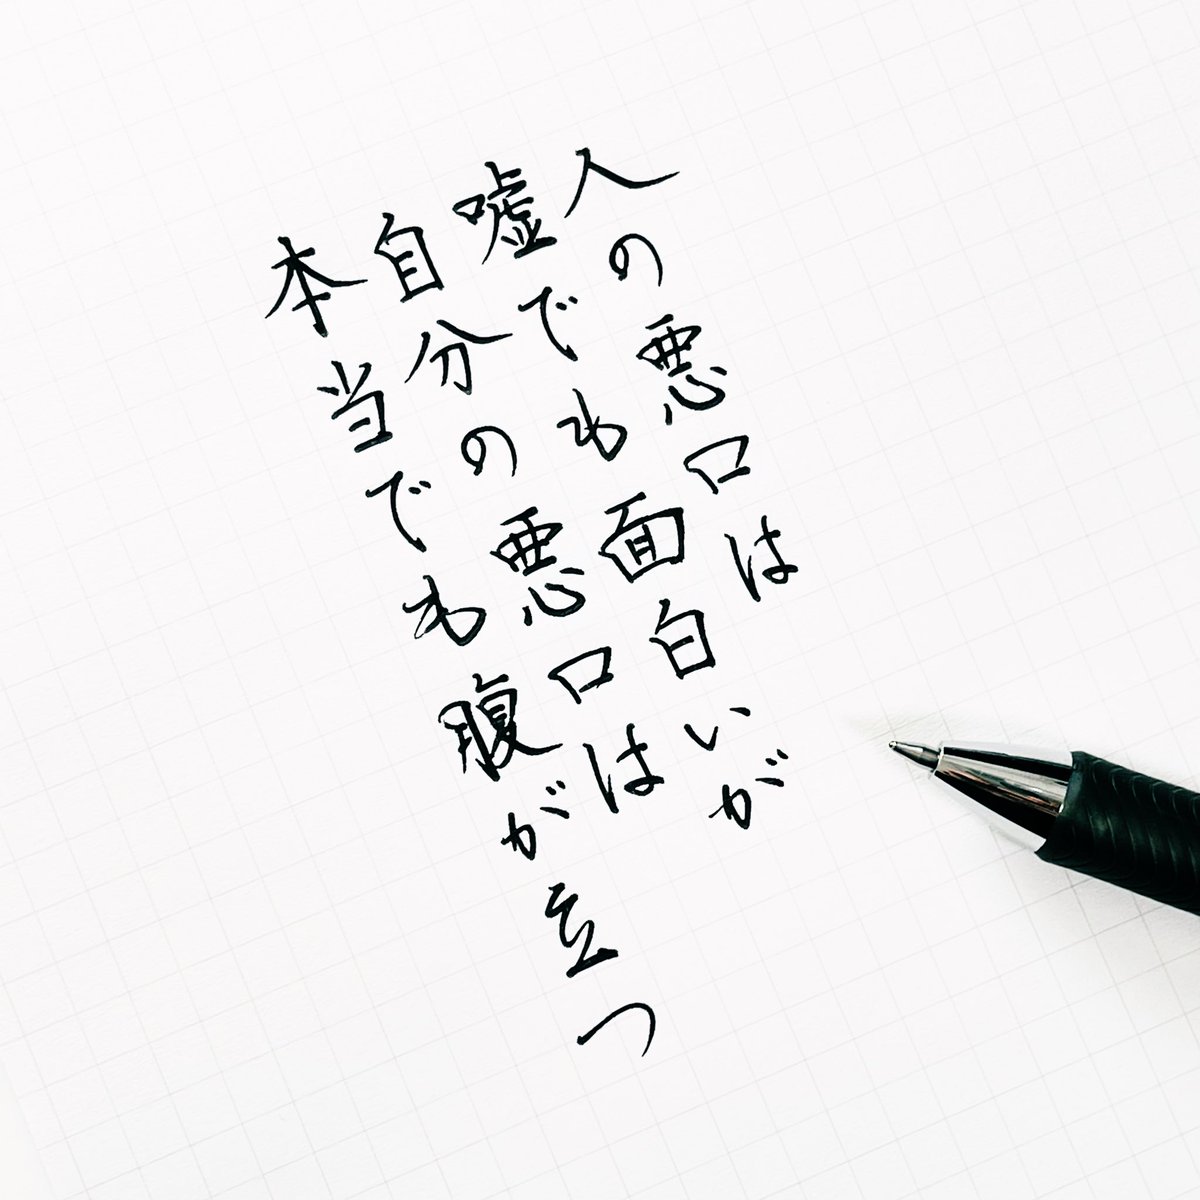 人の悪口は
嘘でも面白いが
自分の悪口は
本当でも腹が立つ